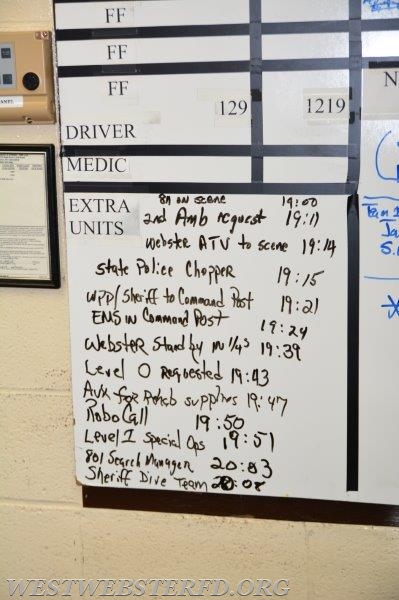 FF
FF
FF
129 1219
DRIVER
MEDIC
EXTRA UNITS
on scene 19:00
2nd Amb request 19:11
Webster ATV to scene 19:14
State Police Chopper 19:15
WPD/Sheriff to Command Post 19:21
EMS in Command Post 19:24
Webster Stand by in 1/4s 19:39
Level 0 Requested 19:43
Aux for Rehab supplies 19:47
RoboCall 19:50
Level I Special Ops 19:51
801 Search Manager 20:03
Sheriff Dive Team 20:08
WESTWEBSTERFD.ORG